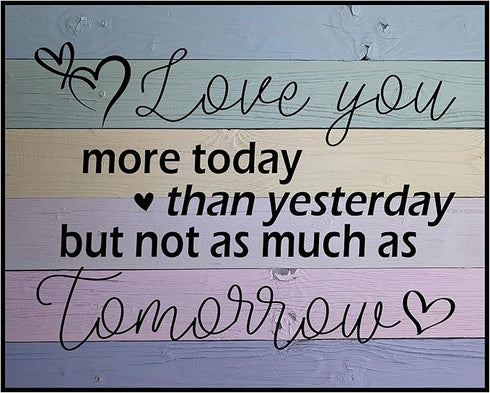 Love you
more today
than yesterday
but not as much as
Tomorrow